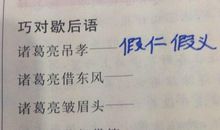 巧对歇后语
诸葛亮吊孝——假仁假义
诸葛亮借东风——
诸葛亮皱眉头——